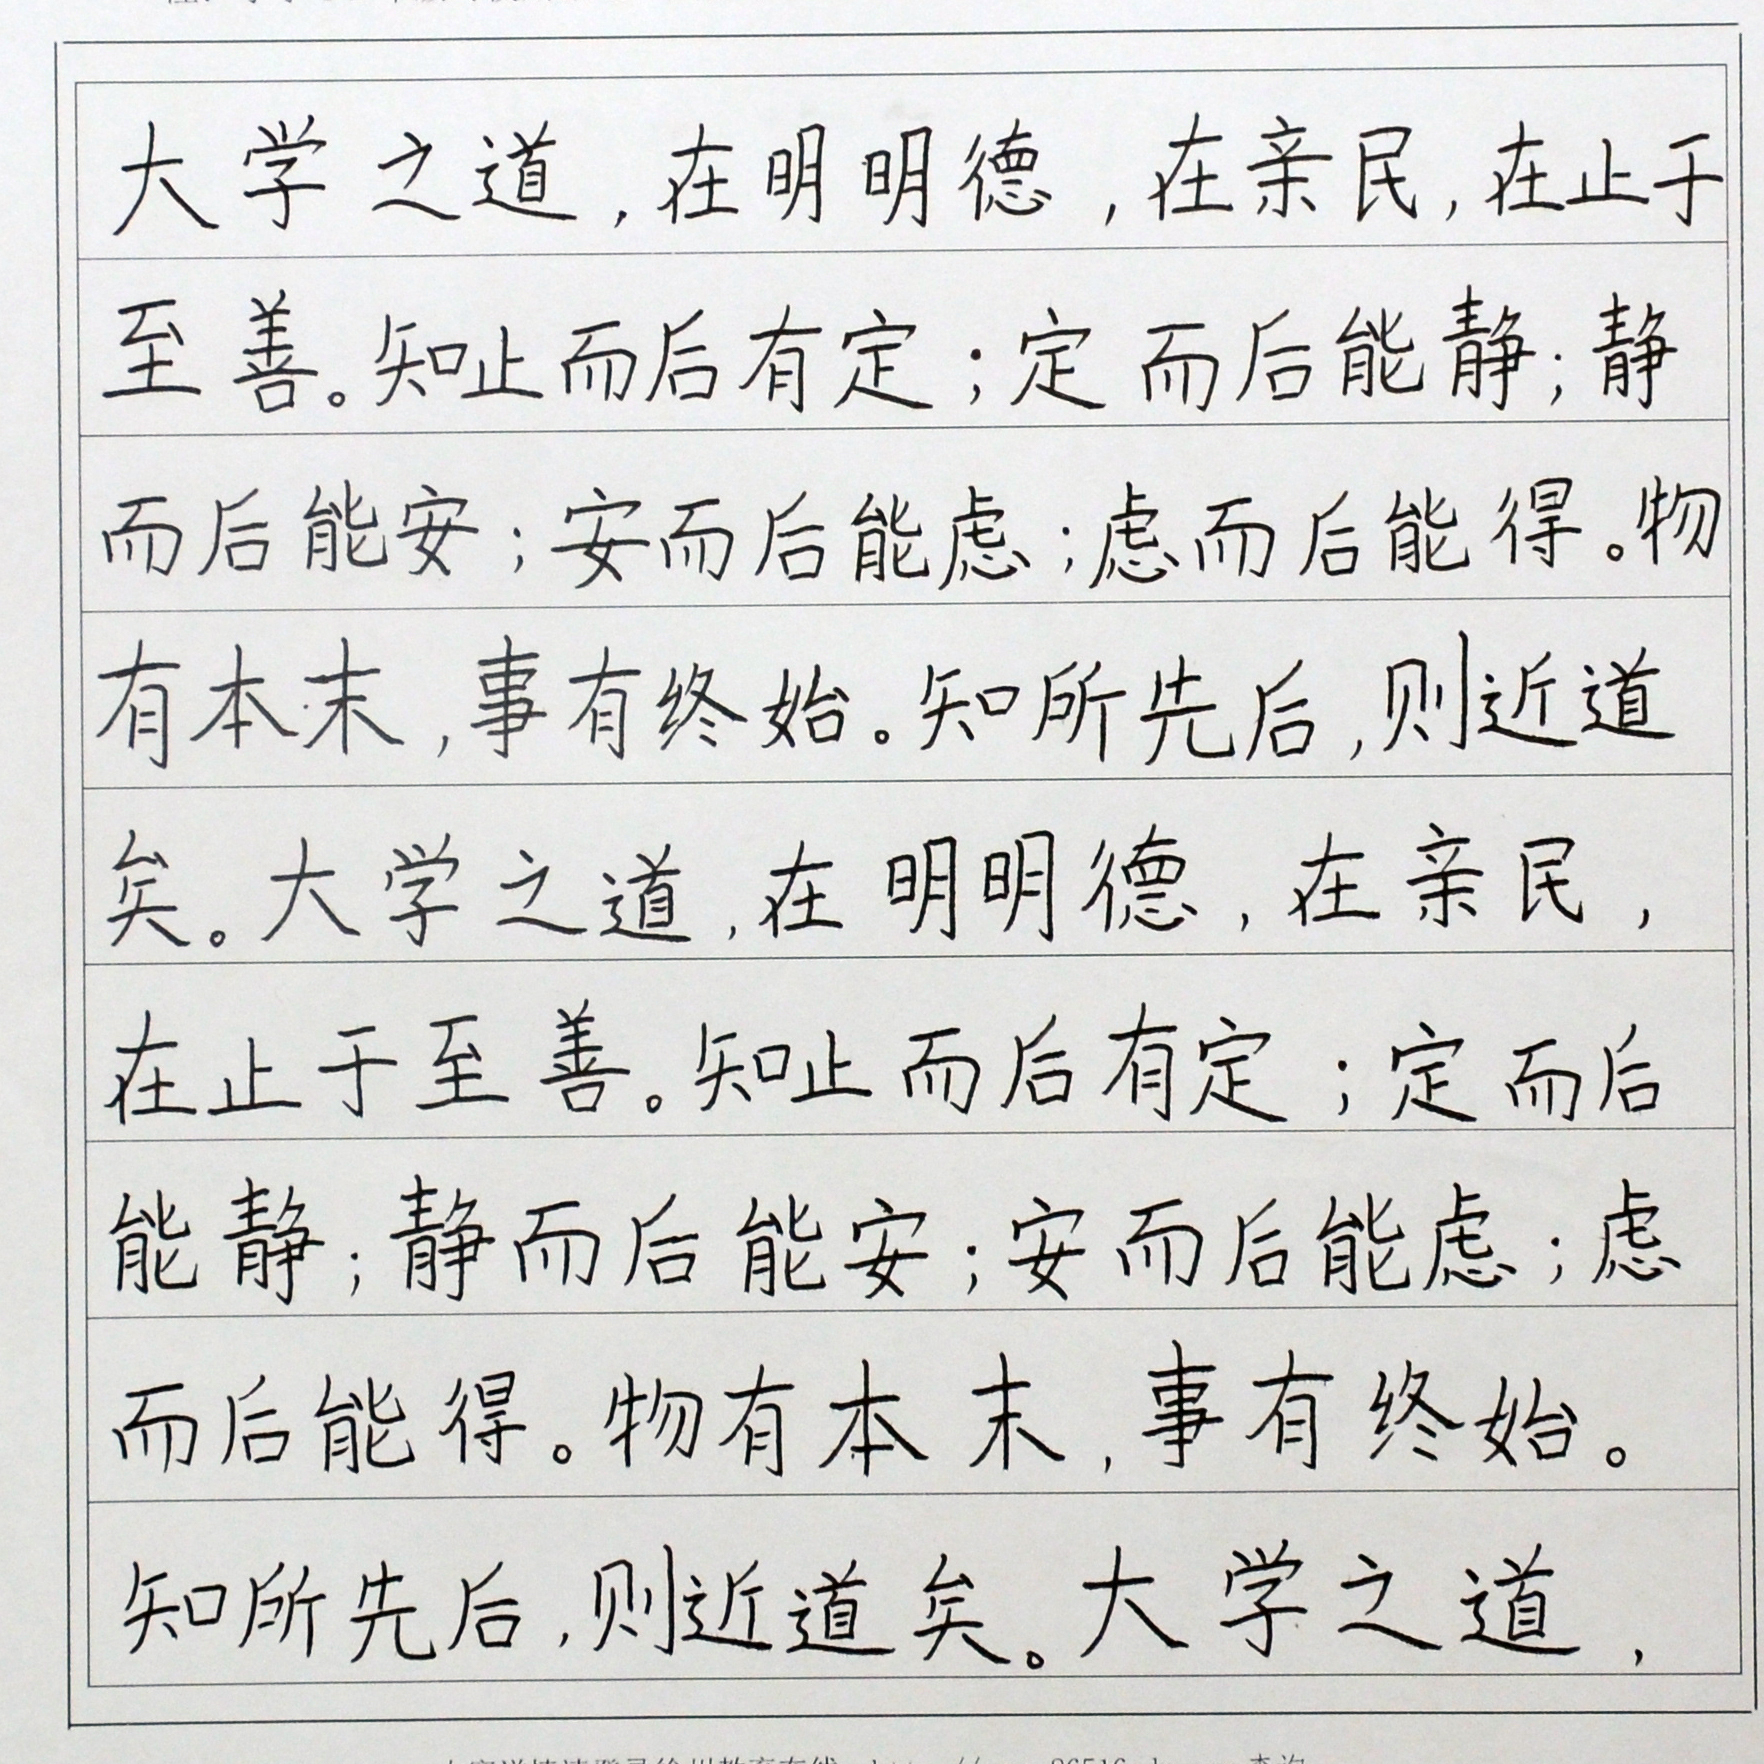 大学之道，在明明德，在亲民，在止于
至善。知止而后有定；定而后能静；静
而后能安；安而后能虑；虑而后能得。物
有本末，事有终始。知所先后，则近道
矣。大学之道，在明明德，在亲民，
在止于至善。知止而后有定；定而后
能静；静而后能安；安而后能虑；虑
而后能得。物有本末，事有终始。
知所先后，则近道矣。大学之道，